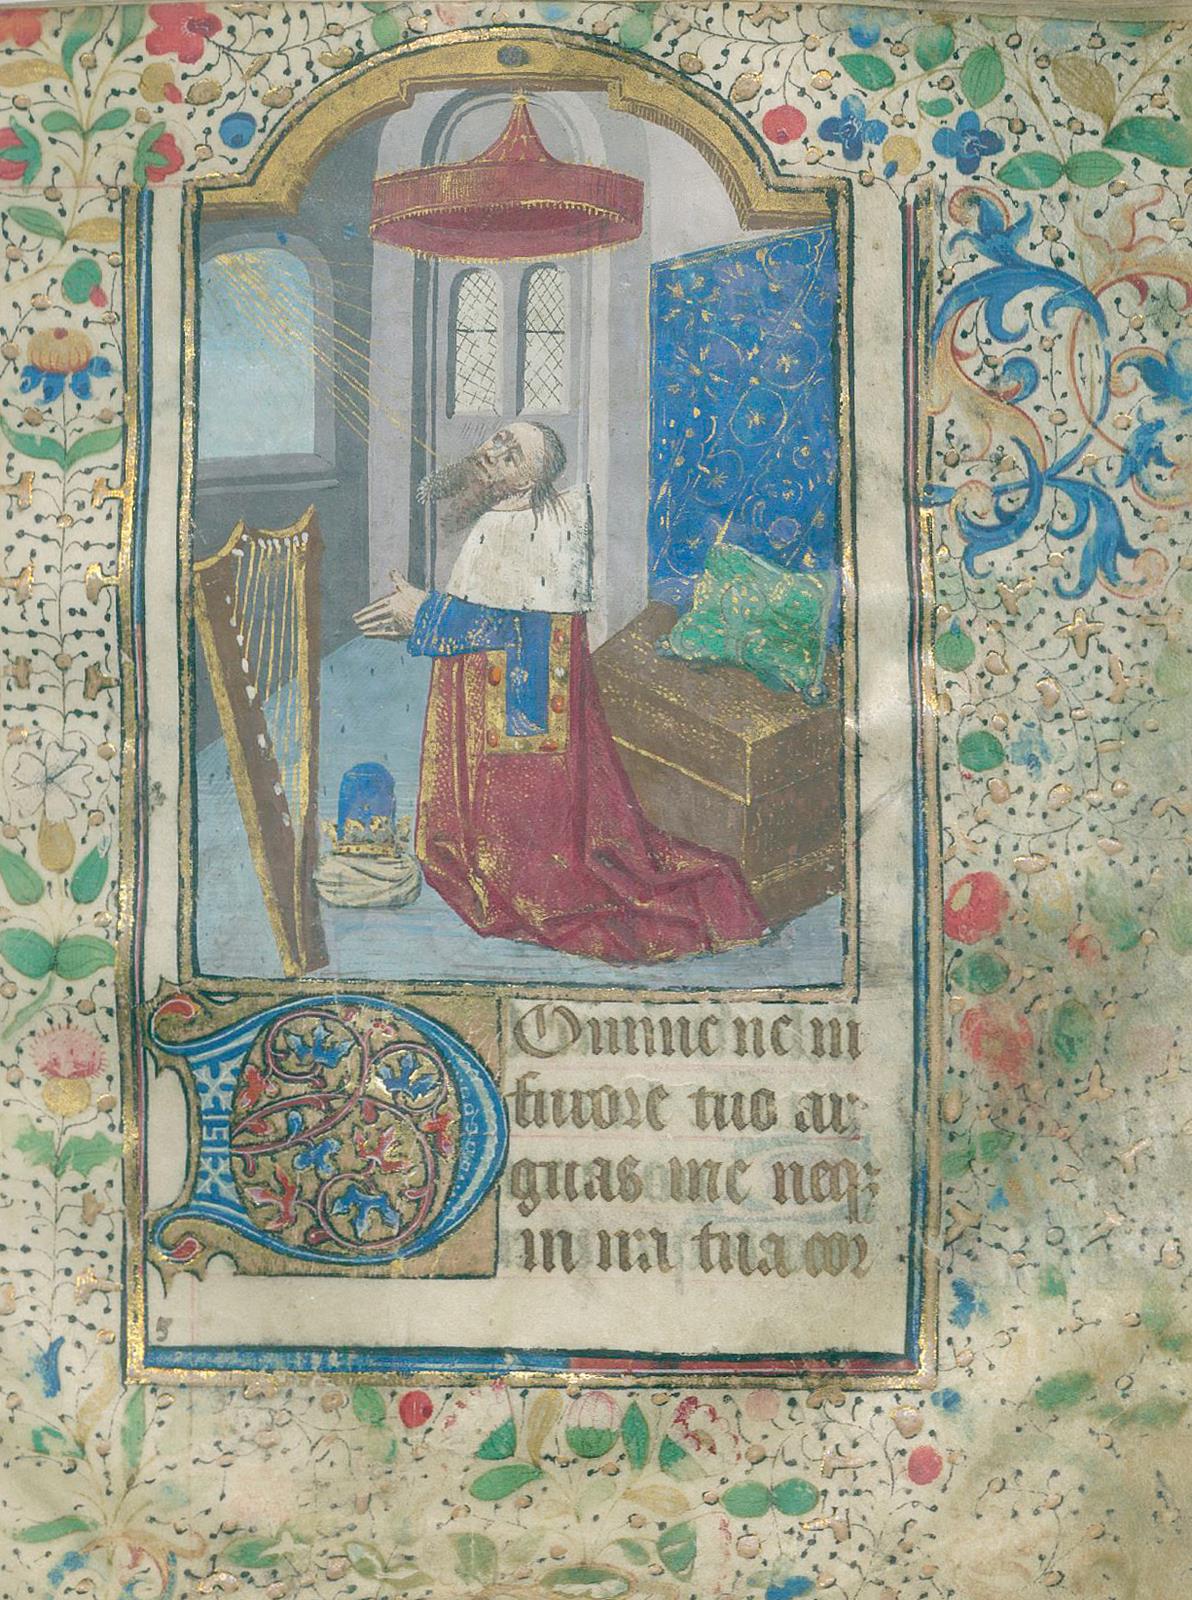 Domine ne in
furore tuo ar
guas me neqz
in ira tua cor
5